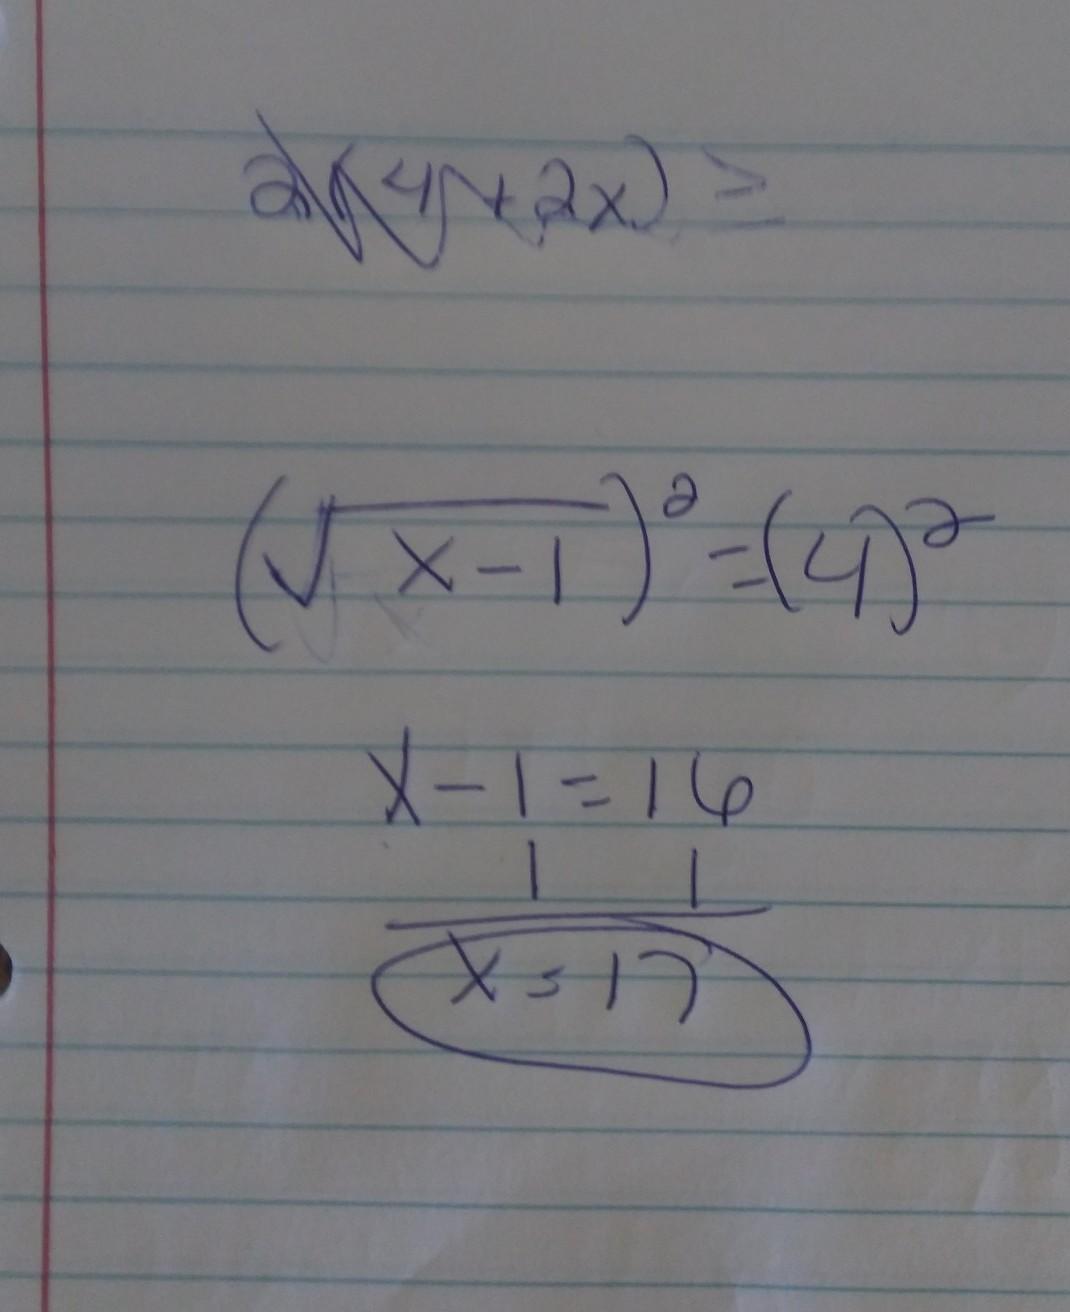 2(4+2x) =
(√x-1)² = (4)²
x-1=16
1 1
x=17